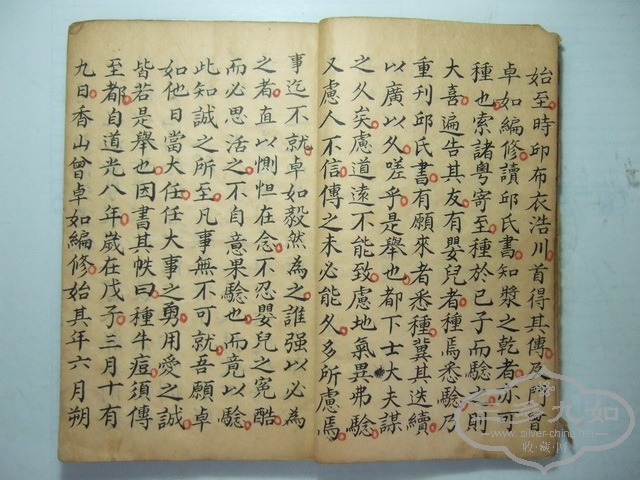 始至時邱布衣浩川首得其傳及曾
卓如編修讀邱氏書知漿之乾者亦可
種也索諸粵寄至種於已子而驗之則
大喜遍告其友有嬰兒者種焉悉驗乃
重刊邱氏書有願來者悉種冀其迭續
以廣以久嗟乎是舉也都下士大夫謀
之久矣慮道遠不能致慮地氣異弗驗
又慮人不信傳之未必能久多所慮焉
事迄不就卓如毅然為之誰强以必為
之者直以惻怛在念不忍嬰兒之冤酷
而必思活之不自意果驗也而竟以驗
此知誠之所至凡事無不可就吾願卓
如他日當大任任大事之勇用愛之誠
皆若是舉也因書其帙曰種牛痘須傳
至都自道光八年歲在戊子三月十有
九日香山曾卓如編修始其年六月朔
三多九如